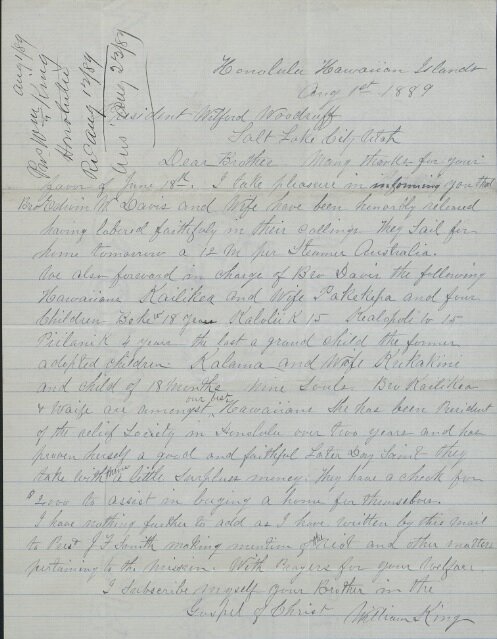 Aug 1/89
Pres Wm King
Honolulu
Re Aug 13/89
Ans Aug 23/89
Honolulu Hawaiian Islands
Aug 1st 1889
President Wilford Woodruff
Salt Lake City Utah
Dear Brother Many thanks for your
favor of June 18th. I take pleasure in informing you that
Bro Edwin W Davis and Wife have been honorbly released
having labored faithfully in their callings they Sail for
home tomorrow a 12 M per Steamer Australia.
We also forward in charge of Bro Davis the following
Hawaiians Kailikea and Wife Pakekepa and four
Children 18 years 15 15
Piilani K 4 years the last a grand child the former
adopted children Kalama and Wife
and child of 18 months nine Souls. Bro Kailikea
& Waife are amongst our best Hawaiians She has been President
of the relief Society in Honolulu over two years and has
proven herself a good and faithful Later Day Saint they
take with them a little Surpluss money. They have a check for
$2,000 to assist in buying a home for themselves.
I have nothing further to add as I have written by this mail
to Prest J F Smith making mention of the riot and other matters
pertaining to the mission. With Prayers for your welfare
I Subscribe myself your Brother in the
Gospel of Christ William King